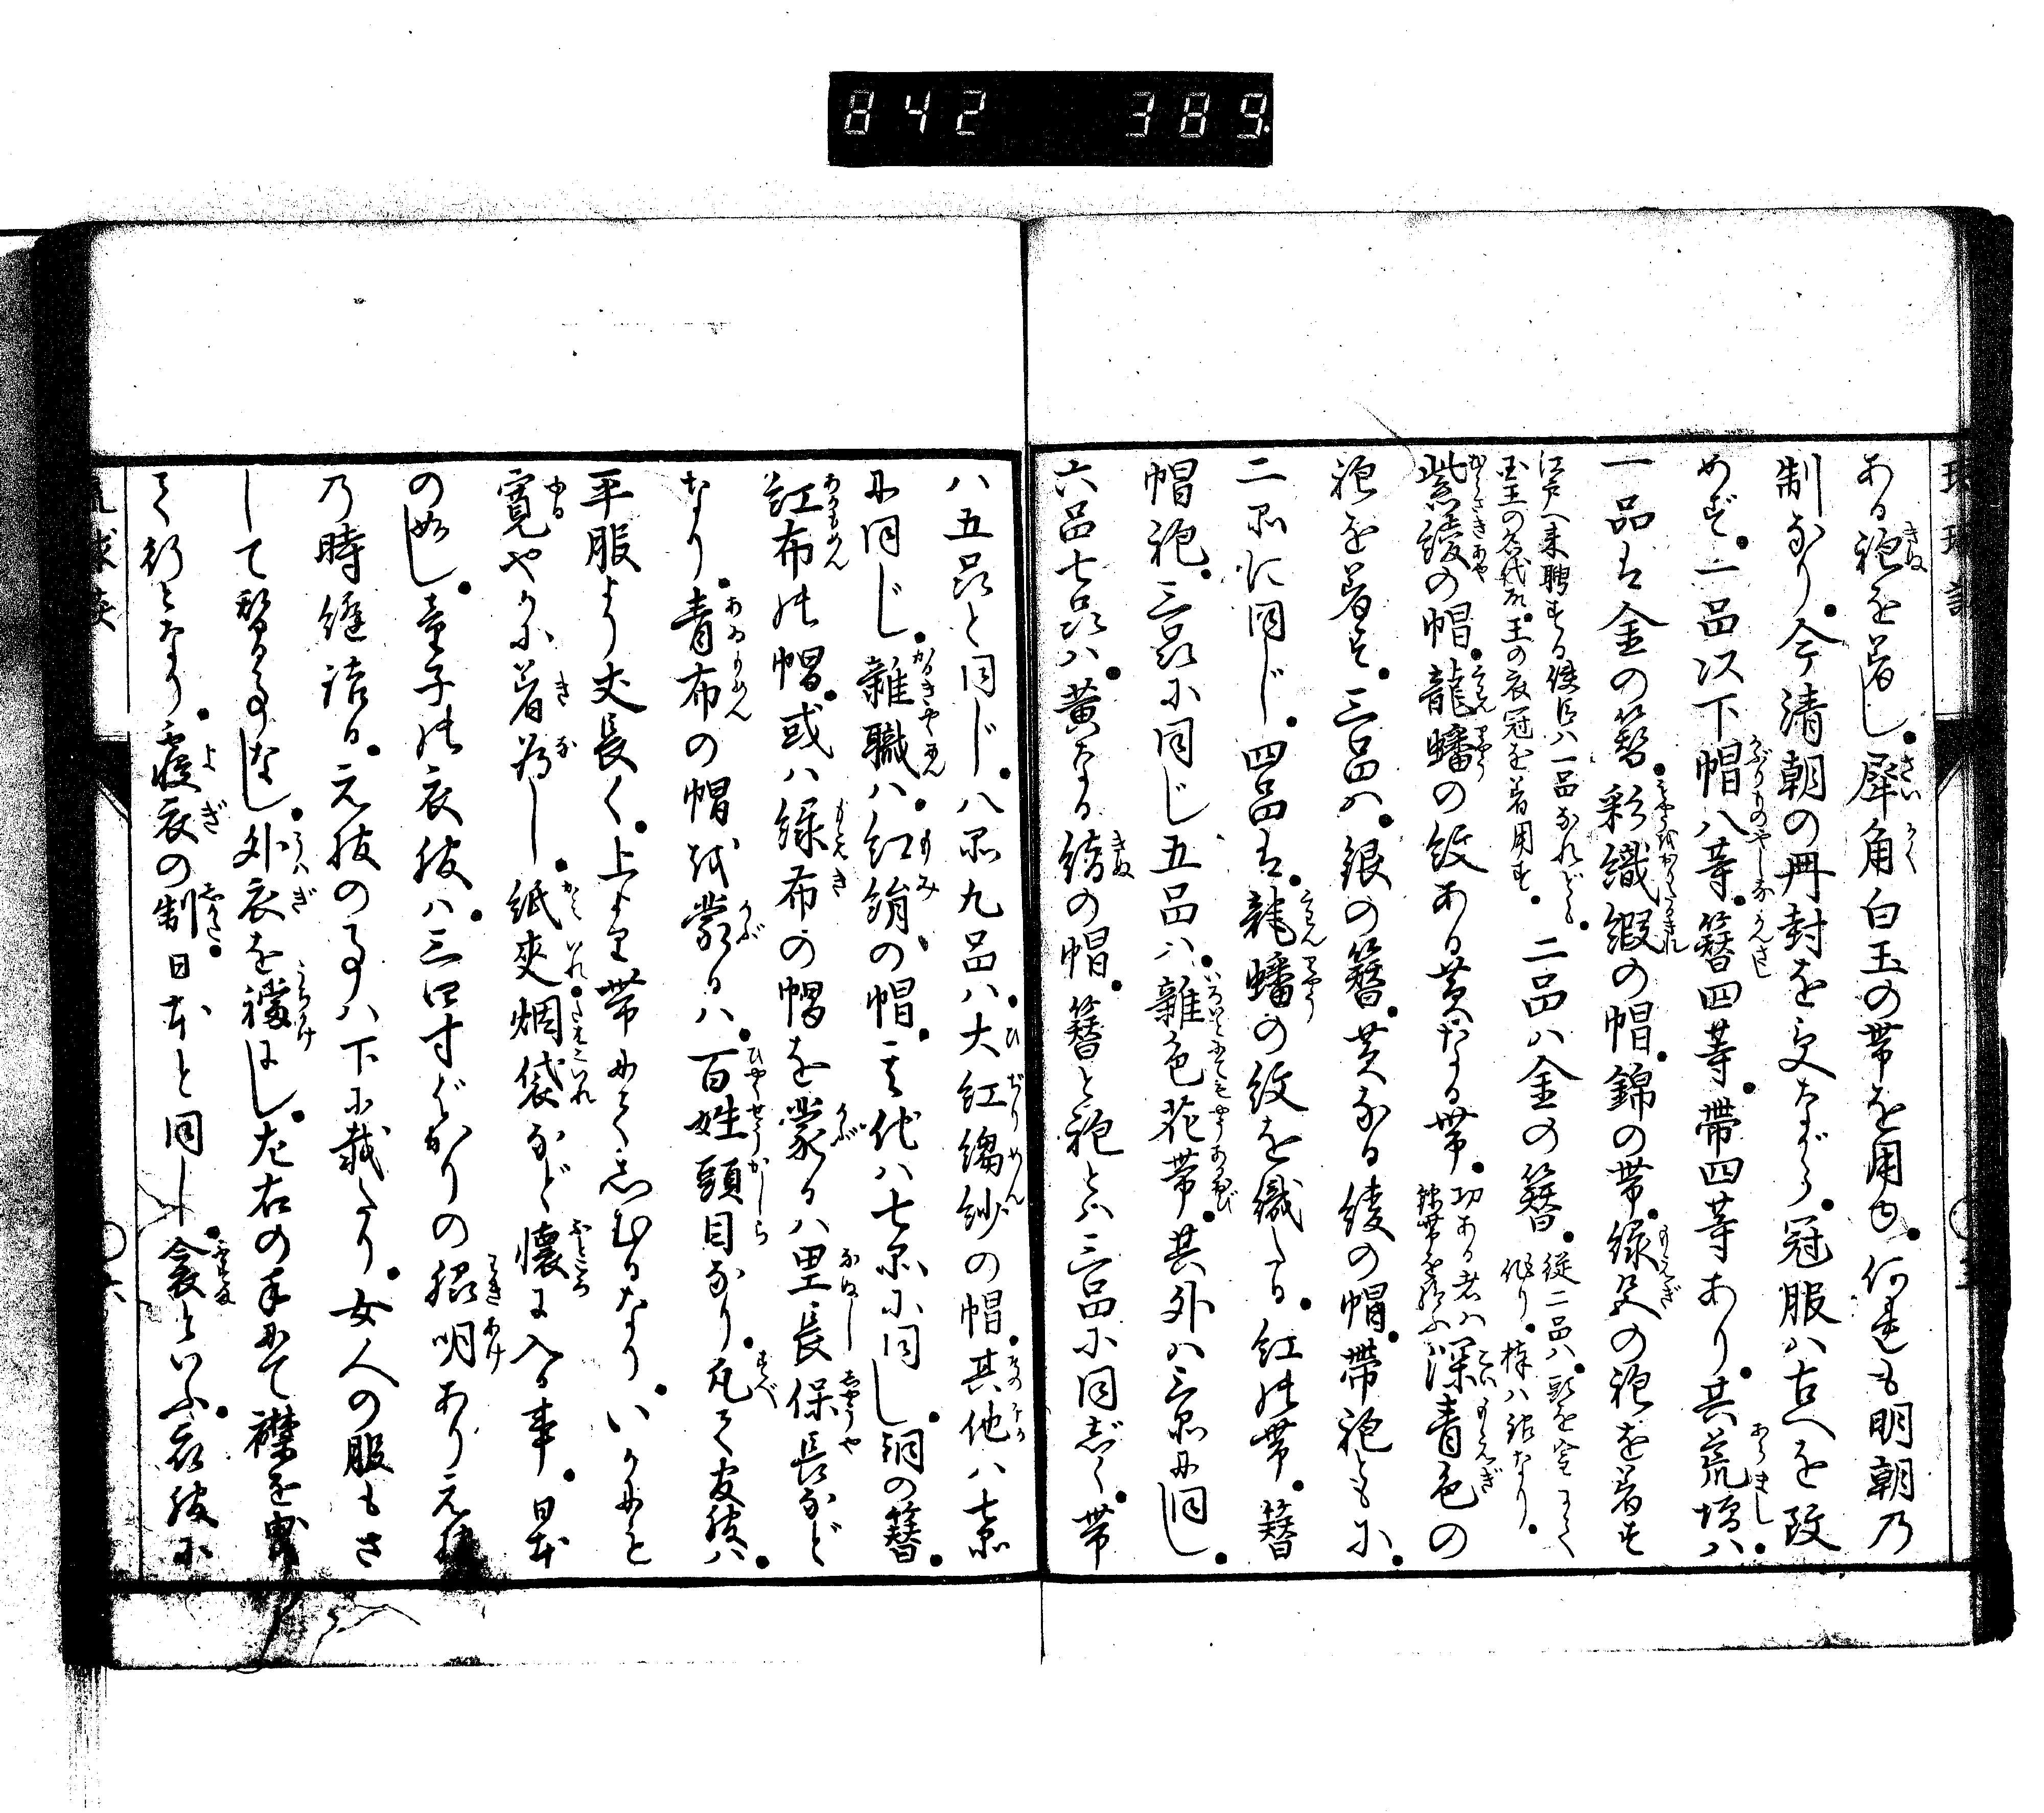 842 389
ある袍を着し。犀角白玉の帯を用ゆ。何れも明朝乃
制なり。今清朝の冊封を受ながら。冠服ハ古へを改
めず。一品以下帽八等。簪四等。帯四等あり。其荒増ハ。
一品は金の簪。彩織緞の帽。錦の帯。緑色の袍を着す
江戸へ来聘する使臣ハ一品なれども。
国王の名代故。王の衣冠を着用す。
二品ハ金の簪。
従二品ハ。頭を金にて
作り。棹ハ銀なり。
紫綾の帽。龍蟠の紋ある黄なる帯。
功ある者ハ
錦帯を賜ふ
深青色の
袍を着す。三品ハ。銀の簪。黄なる綾の帽。帯袍ともに。
二品に同じ。四品は。龍蟠の紋を織たる。紅の帯。簪
帽袍。三品に同じ五品ハ。雑色花帯。其外ハ三品に同し。
六品七品ハ。黄なる絹の帽。簪と袍とハ三品に同じく。帯
ハ五品と同じ。八品九品ハ。大紅縐紗の帽。其他ハ七品
に同じ。雑職ハ。紅絹の帽。其他ハ七品に同し。銅の簪。
紅布の帽。或ハ緑布の帽を蒙るハ里長保長など
なり。青布の帽を蒙るハ。百姓頭目なり。凡て衣服ハ。
平服より丈長く。上より帯にてしむるなり。いかにも
寛やかに着なし。紙夾烟袋など懐に入る事。日本
の如し。童子の衣服ハ。三四寸ばかりの脇明あり元服
乃時縫詰る。元服の事ハ下に載たり。女人の服もさ
して替る事なし。外衣を襠にし。左右の手にて襟を曳
て行となり。寝衣の制。日本と同し。衾といふ。衣服に